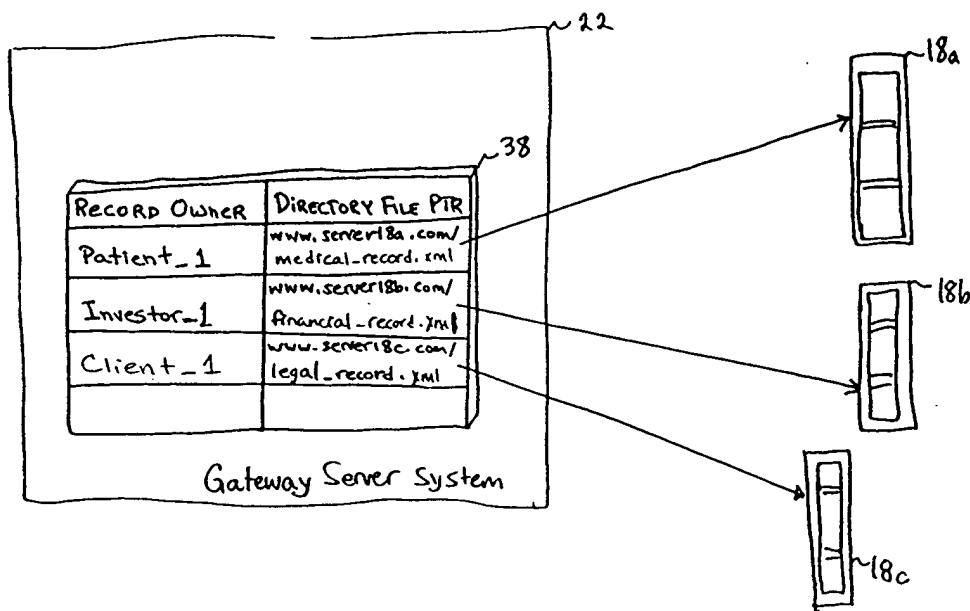 22
18a
38
RECORD OWNER
DIRECTORY FILE PTR
Patient_1
www.server18a.com/
medical_record.xml
Investor_1
www.server18b.com/
financial_record.xml
Client_1
www.server18c.com/
legal_record.xml
18b
Gateway Server System
18c